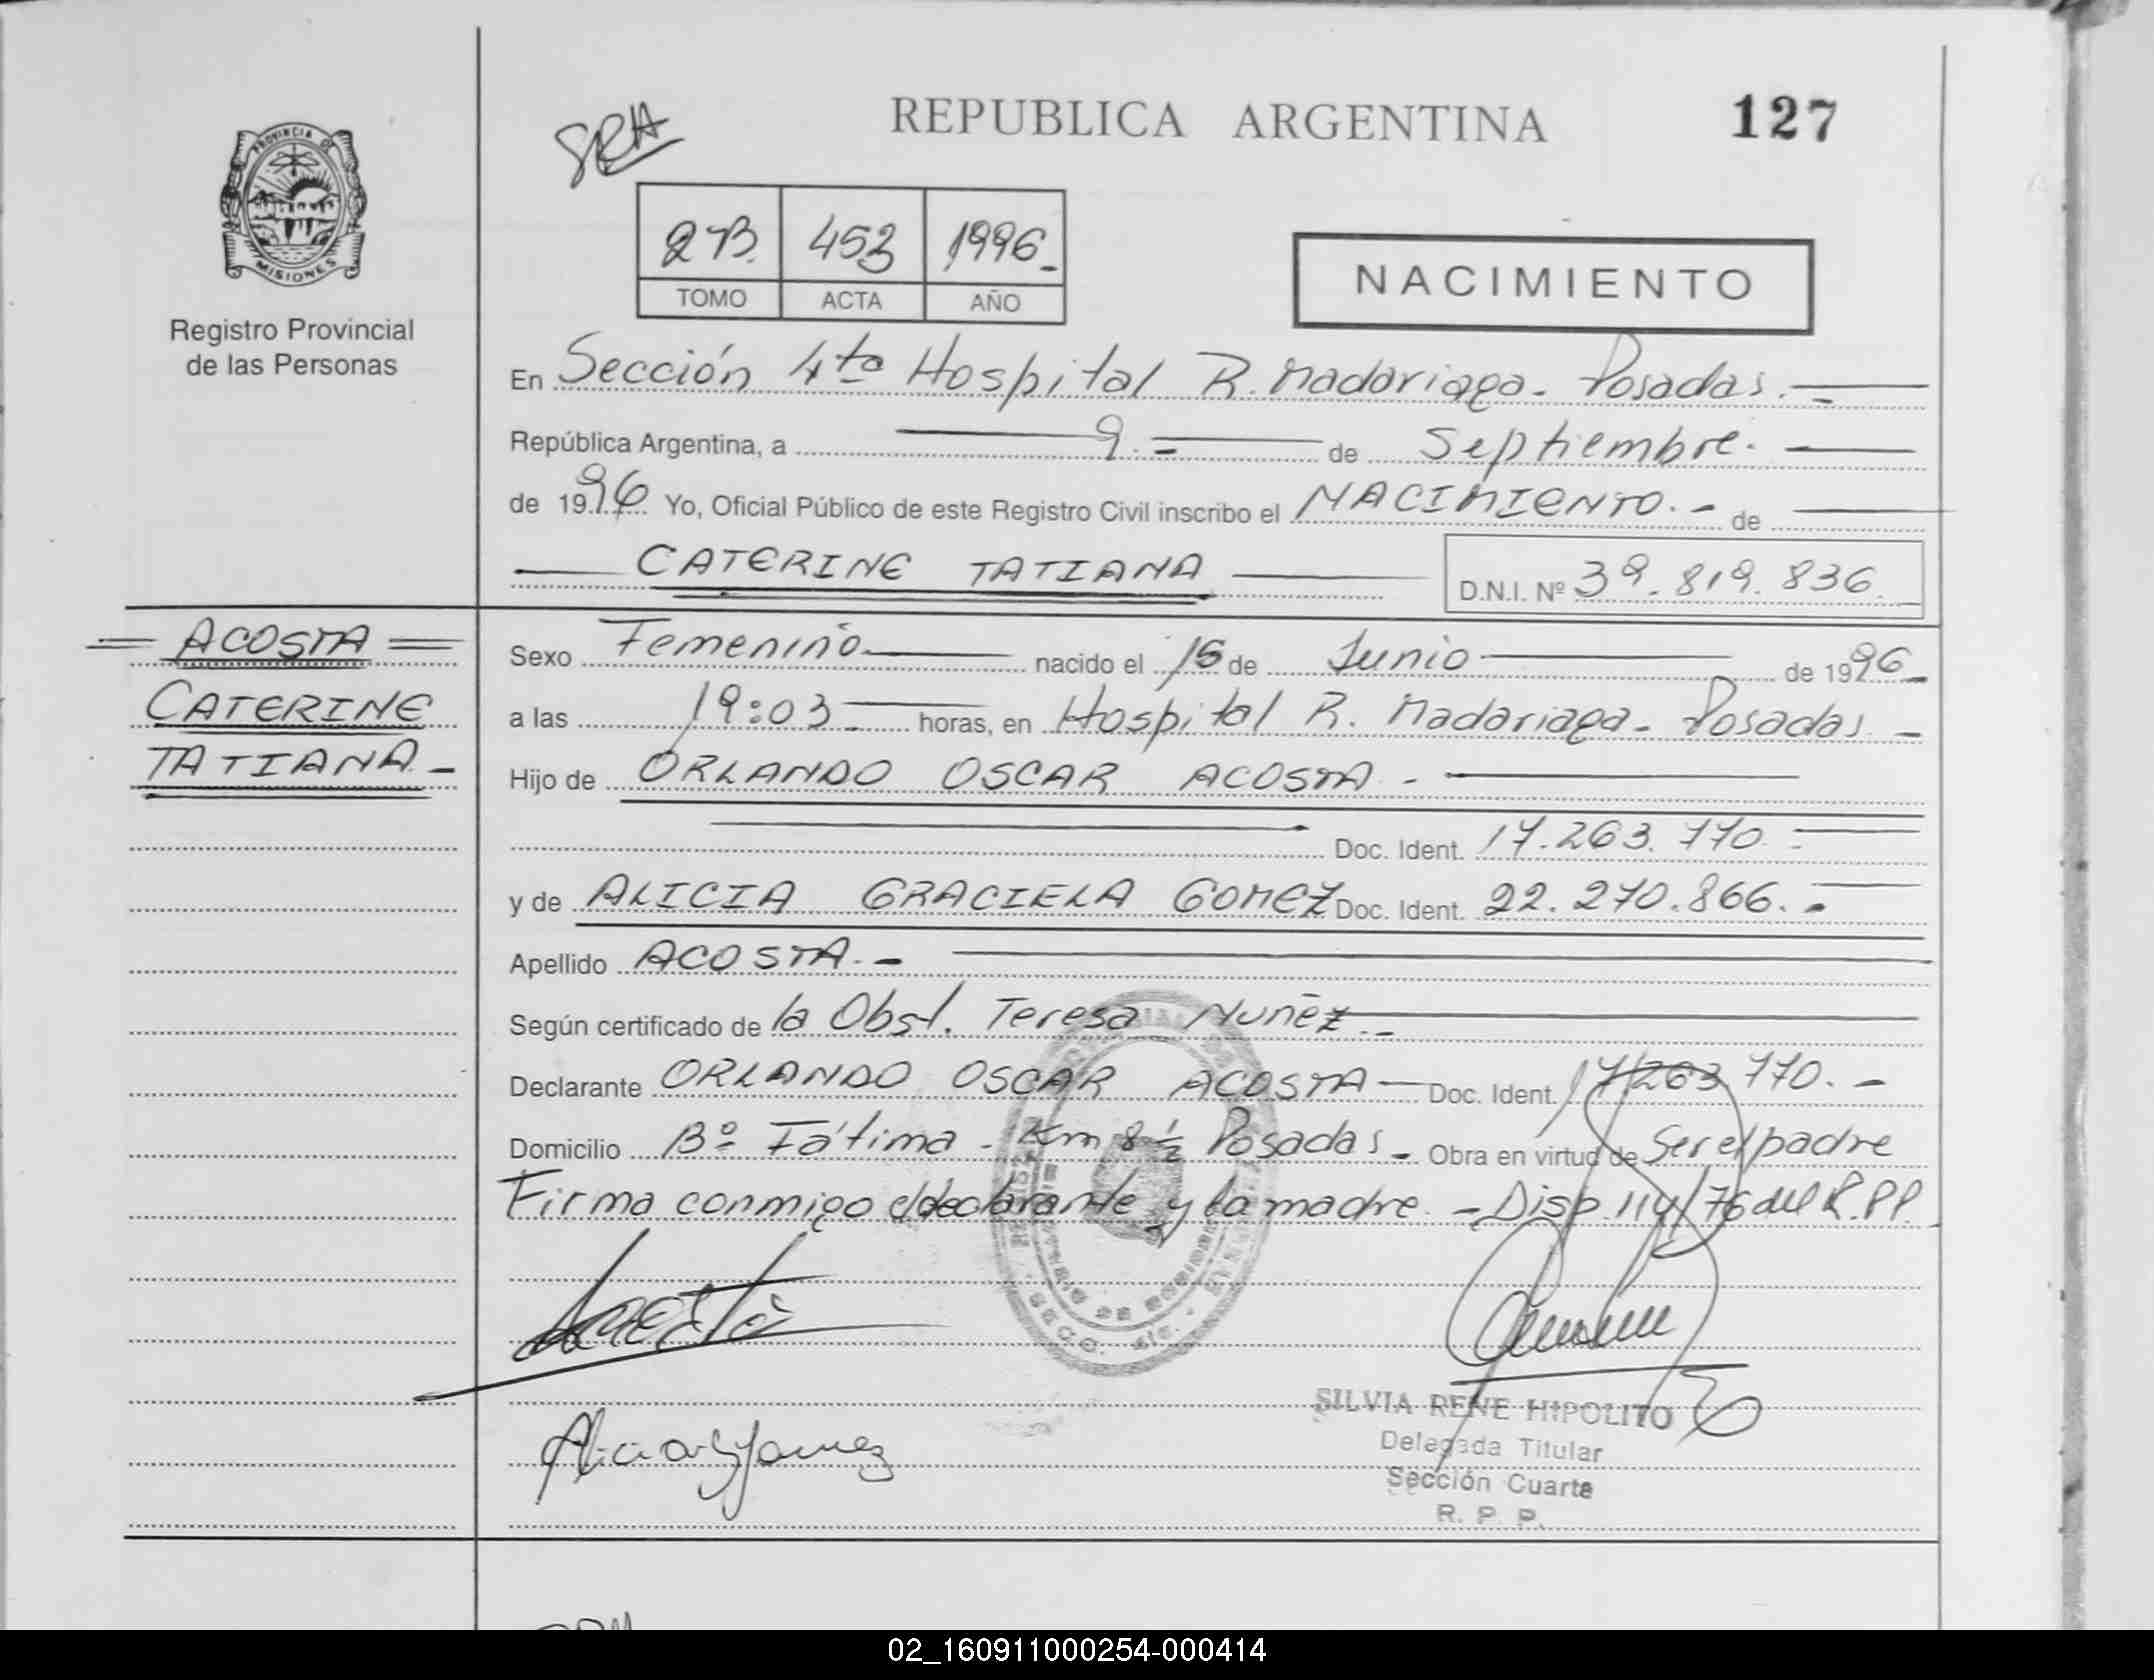 REPUBLICA ARGENTINA
127
PROVINCIA DE
MISIONES
Registro Provincial
de las Personas
2B. 453 1996_
TOMO ACTA AÑO
NACIMIENTO
En Sección 4ta Hospital R. Madariaga - Posadas.
República Argentina, a 9.- de Septiembre.
de 1996 Yo, Oficial Público de este Registro Civil inscribo el NACIMIENTO.- de
CATERINE TATIANA
D.N.I. Nº 39.819.836
ACOSTA
CATERINE
TATIANA.-
Sexo Femenino nacido el de Junio de 1996
a las 19:03 horas, en Hospital R. Madariaga - Posadas -
Hijo de ORLANDO OSCAR ACOSTA.-
Doc. Ident. 17.263.770
y de ALICIA GRACIELA GOMEZ Doc. Ident. 22.270.866.-
Apellido ACOSTA.-
Según certificado de la Obst. Teresa Nuñez
Declarante ORLANDO OSCAR ACOSTA - Doc. Ident. 17.263.770.-
Domicilio Bº Fátima - Km 8 ½ Posadas - Obra en virtud de Ser el padre
Firma conmigo el declarante y la madre. - Disp. 114/76 del R.P.P.
SILVIA RENE HIPOLITO
Delegada Titular
Sección Cuarta
R. P. P.
02_160911000254-000414